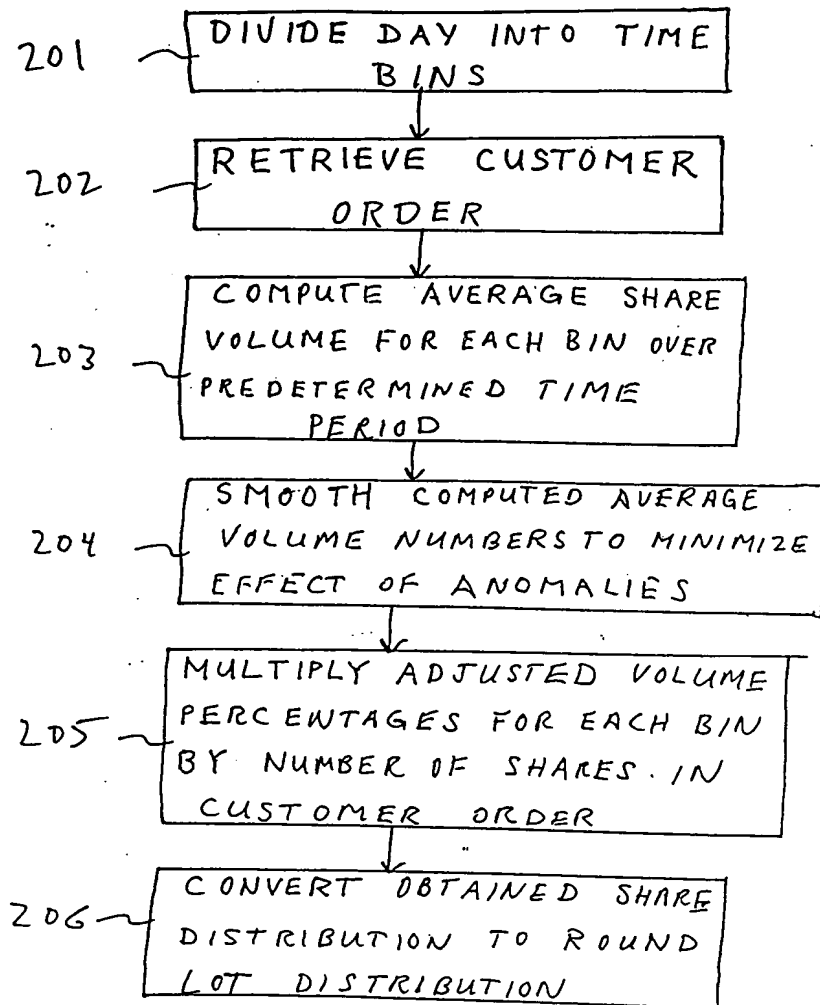 201
DIVIDE DAY INTO TIME
BINS
202
RETRIEVE CUSTOMER
ORDER
203
COMPUTE AVERAGE SHARE
VOLUME FOR EACH BIN OVER
PREDETERMINED TIME
PERIOD
204
SMOOTH COMPUTED AVERAGE
VOLUME NUMBERS TO MINIMIZE
EFFECT OF ANOMALIES
205
MULTIPLY ADJUSTED VOLUME
PERCENTAGES FOR EACH BIN
BY NUMBER OF SHARES IN
CUSTOMER ORDER
206
CONVERT OBTAINED SHARE
DISTRIBUTION TO ROUND
LOT DISTRIBUTION